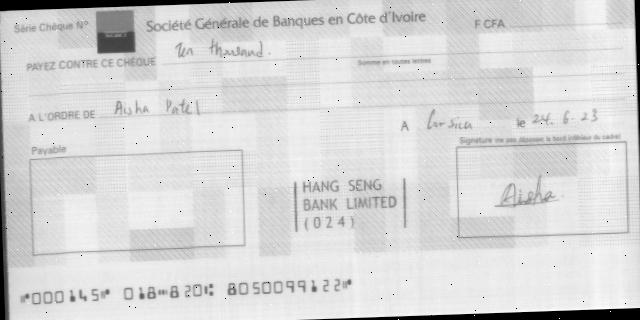 Série Chèque N° Société Générale de Banques en Côte d'Ivoire F CFA
PAYEZ CONTRE CE CHÈQUE Ten thousand.
Somme en toutes lettres
A L'ORDRE DE Aisha Patel
A Corsica le 24.6.23
Payable
HANG SENG
BANK LIMITED
(024)
Aisha
⑈000145⑈ 018⑉820⑆ 8050099122⑈